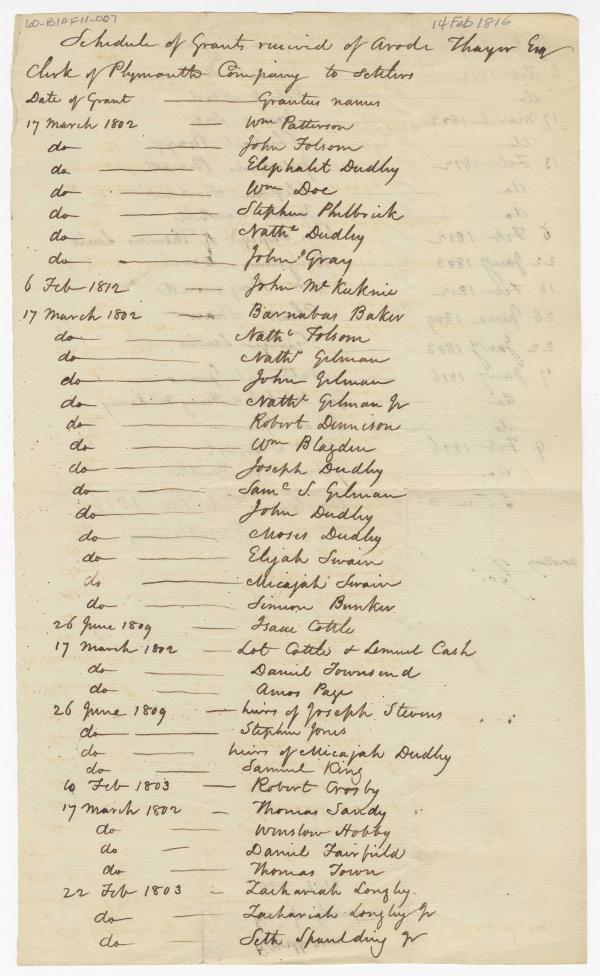 60-B10F11-007
14 Feb 1816
Schedule of Grants received of Arodi Thayer Esq
Clerk of Plymouth Company to Settlers
Date of Grant — Grantees names
17 March 1802 — Wm Patterson
do — John Folsom
do — Eliphalit Dudley
do — Wm Doe
do — Stephen Philbrick
do — Nathl Dudley
do — John Gray
6 Feb 1812 — John McKecknie
17 March 1802 — Barnabas Baker
do — Nathl Folsom
do — Nathl Gilman
do — John Gilman
do — Nathl Gilman Jr
do — Robert Dennison
do — Wm Blagden
do — Joseph Dudley
do — Saml S. Gilman
do — John Dudley
do — Moses Dudley
do — Elijah Swain
do — Micajah Swain
do — Simeon Bunker
26 June 1809 — Isaac Cottle
17 March 1802 — Lot Cottle & Lemuel Cash
do — Daniel Townsend
do — Amos Page
26 June 1809 — heirs of Joseph Stevens
do — Stephen Jones
do — heirs of Micajah Dudley
do — Samuel King
Feb 1803 — Robert Crosby
17 March 1802 — Thomas Sandy
do — Winslow Hobby
do — Daniel Fairfield
do — Thomas Town
22 Feb 1803 — Zachariah Longley.
do — Zachariah Longley Jr
do — Seth Spaulding Jr